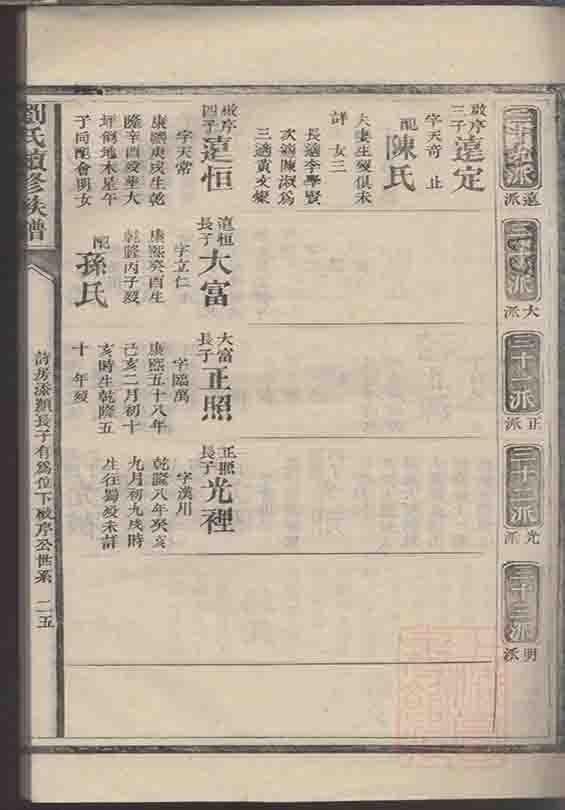 遠派
三十派
大派
三十一派
正派
三十二派
光派
三十三派
明派
啟序三子
遠定
字天奇 止
配
陳氏
夫妻生歿俱未
詳 女三
長適李學賢
次適陳淑為
三適黃文燦
啟序四子
遠恒
字天常
康熙庚戌生乾
隆辛酉歿葬大
坪倒地木星午
于同配會明女
遠桓長子
大富
字立仁
康熙癸酉生
乾隆丙子歿
配
孫氏
大富長子
正照
字臨萬
康熙五十八年
己亥二月初十
亥時生乾隆五
十 年歿
正照長子
光裡
字漢川
乾隆八年癸亥
九月初九戌時
生往蜀歿未詳
劉氏續修族譜
房添顏長子有為位下啟序公世系 二五